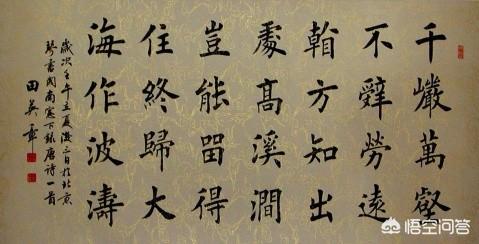 千巖萬壑
不辤勞遠
看方知出
處高溪澗
豈能留得
住終歸大
海作波濤
歲次壬午立夏後三日於北京
琴書閣南窗下錄唐詩一首
田英章
悟空问答